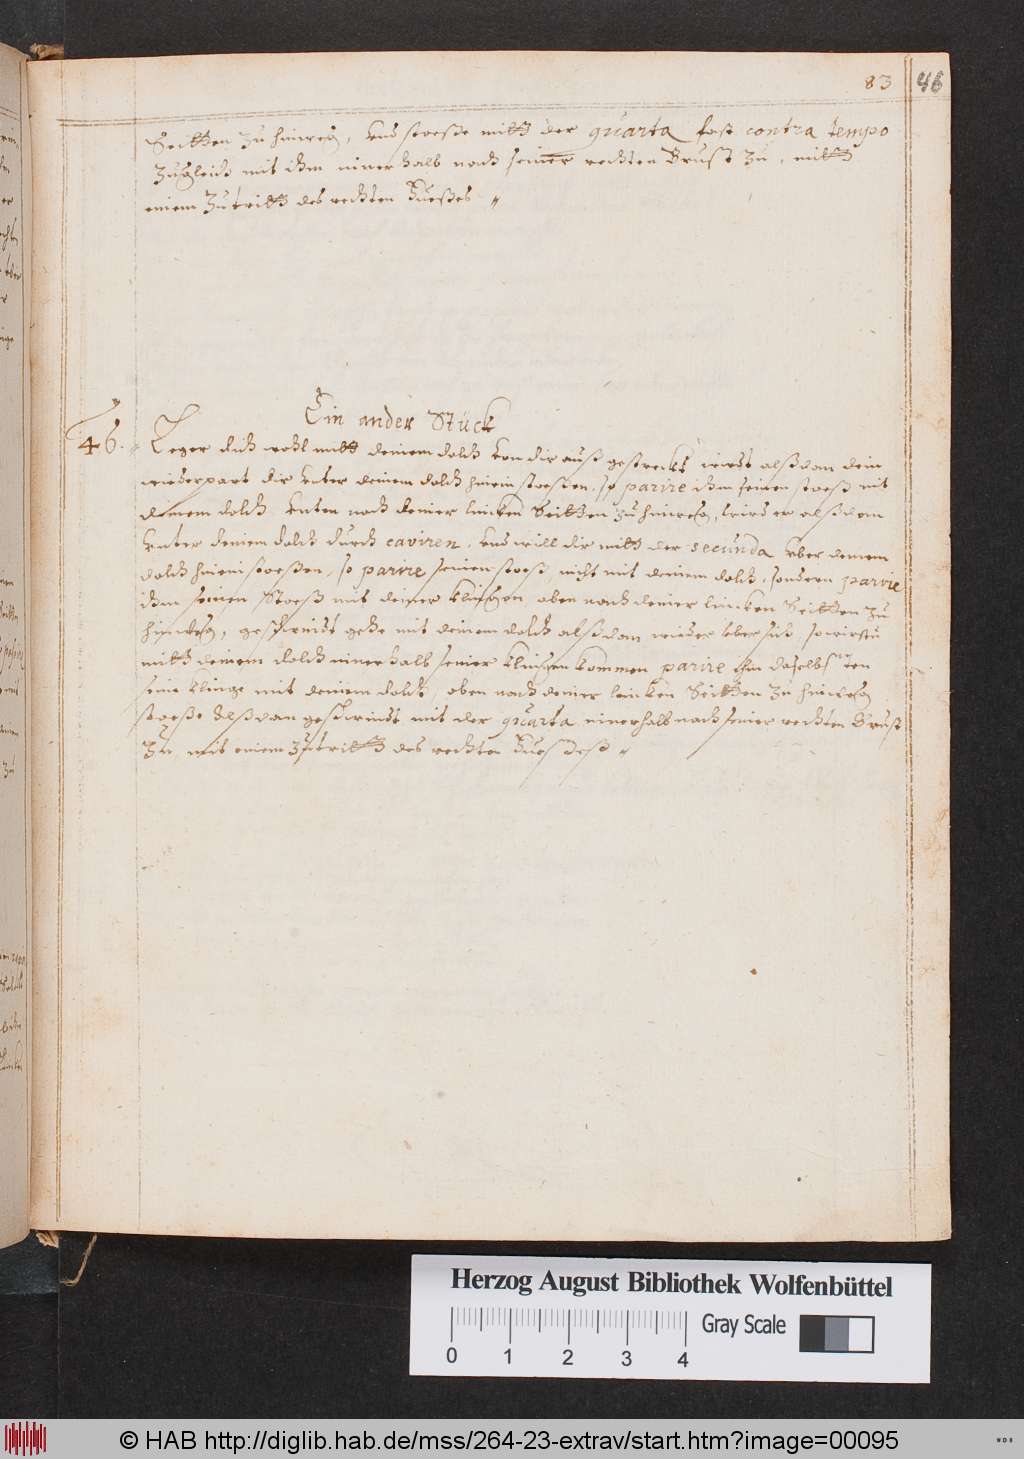 83
46
Seitten zu hinweg, vnd stoeße mitt der quarta fast contra tempo
zugleich mit ihm innerhalb nach seiner rechten Brust zu, mitt
einem Zutritt des rechten Fueßes
Ein ander Stück
46. Leger dich wohl mitt deinem dolch von dir auß gestreckt, wirdt alßdan dein
wiederpart dir vnter deinem dolch hinein stoeßen, so parire ihm seinen stoeß mit
deinem dolch vnten nach deiner lincken Seitten zu hinweg, wird er alßdan
vnter deinem dolch durch caviren, vnd will dir mitt der secunda vber deinem
dolch hinein stoeßen, so parire seinen stoeß, nicht mit deinem dolch, sondern parire
ihm seinen Stoeß mit deiner klingen oben nach deiner lincken Seitten zu
hinweg, geschwindt gehe mit deinem dolch alßdan wieder vber sich, so wirstu
mitt deinem dolch innerhalb seiner klingen kommen parire ihm daselbsten
seine klinge mit deinem dolch, oben nach deiner lincken Seitten zu hinweg
stoeße alßdan geschwindt mit der quarta innerhalb nach seiner rechten Brust
Zu, mit einem Zutritt des rechten
Herzog August Bibliothek Wolfenbüttel
Gray Scale
0 1 2 3 4
© HAB http://diglib.hab.de/mss/264-23-extrav/start.htm?image=00095